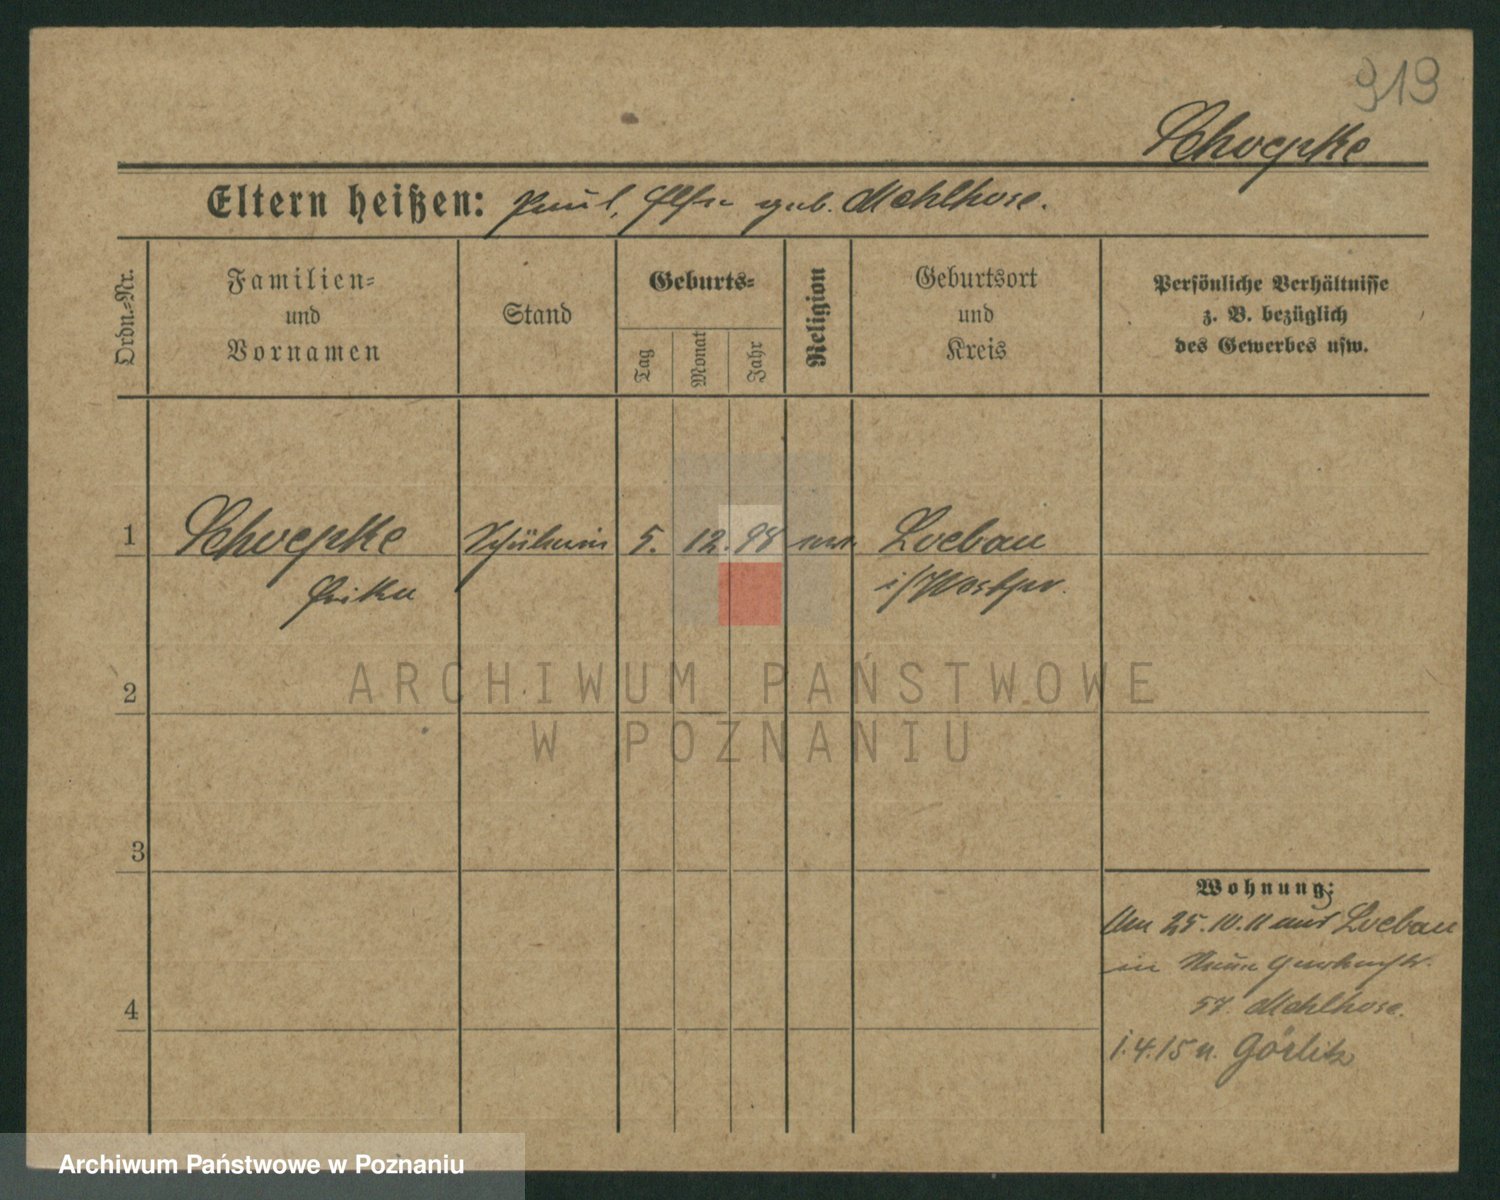 919
Schoepke
Eltern heißen: Paul, Else geb. Mehlhose.
Ordn.-Nr.
Familien=
und
Vornamen
Stand
Geburts=
Tag
Monat
Jahr
Religion
Geburtsort
und
Kreis
Persönliche Verhältnisse
z. B. bezüglich
des Gewerbes usw.
1 Schoepke Schülerin 5. 12. 98 Loebau
Erika i/Westpr.
ARCHIWUM PAŃSTWOWE
W POZNANIU
2
3
4
Wohnung:
Am 25.10.11 aus Loebau
in Neue
57. Mehlhose.
1.4.15 n. Görlitz
Archiwum Państwowe w Poznaniu